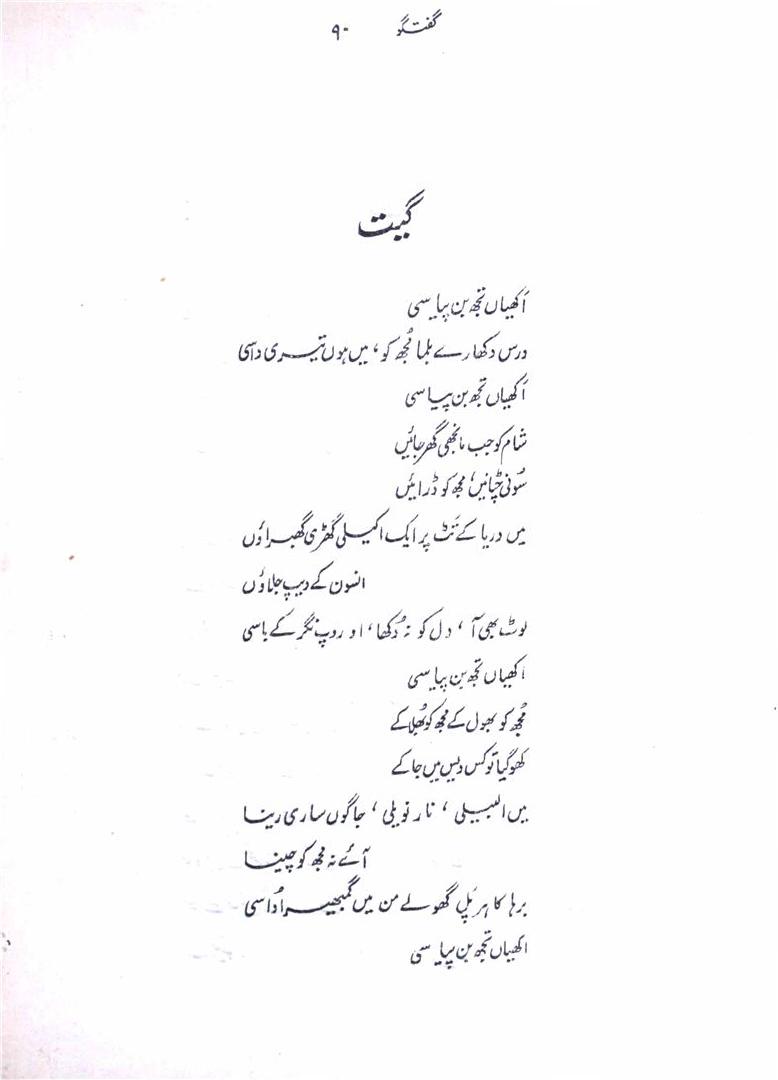 گفتگو ۹۰
گیت
اَکھیاں تجھ بن پیاسی
درس دکھا رے بلما مُجھ کو، میں ہوں تیری داسی
اَکھیاں تجھ بن پیاسی
شام کو جب مانجھی گھر جائیں
سُونی چٹانیں، مجھ کو ڈرائیں
میں دریا کے تَٹ پر ایک اکیلی گھڑی گھبراؤں
انسون کے دیپ جلاؤں
لوٹ بھی آ، دل کو نہ دُکھا، او روپ نگر کے باسی
اکھیاں تجھ بن پیاسی
مُجھ کو بھول کے مجھ کو بُھلا کے
کھو گیا تو کس دیس میں جا کے
میں البیلی، نار نویلی، جاگوں ساری رینا
آئے نہ مجھ کو چینا
برہا کا ہر پَل گھولے من میں گمبھیر اُداسی
اکھیاں تجھ بن پیاسی